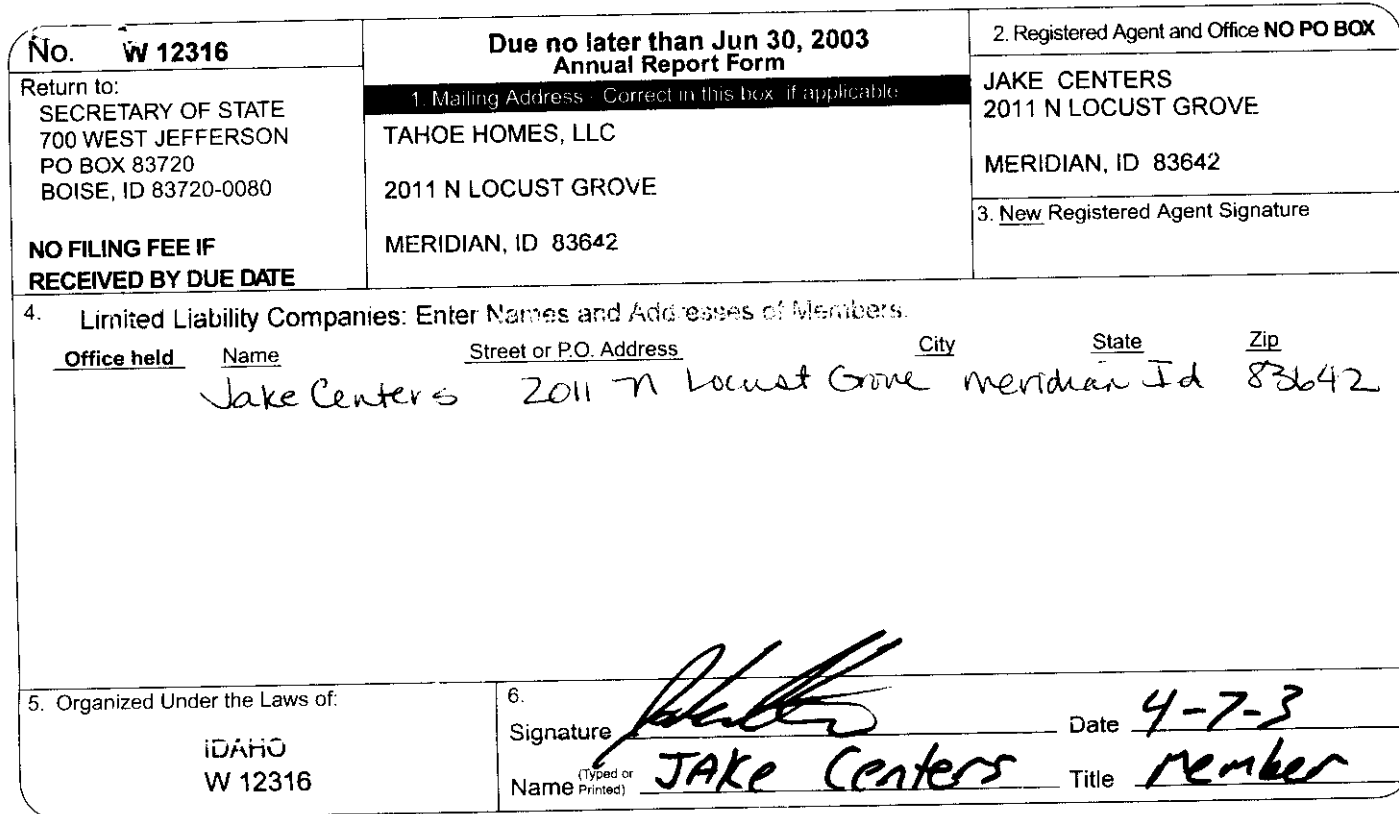 No. W 12316
Return to:
SECRETARY OF STATE
700 WEST JEFFERSON
PO BOX 83720
BOISE, ID 83720-0080
NO FILING FEE IF
RECEIVED BY DUE DATE
Due no later than Jun 30, 2003
Annual Report Form
1. Mailing Address - Correct in this box if applicable
TAHOE HOMES, LLC
2011 N LOCUST GROVE
MERIDIAN, ID 83642
2. Registered Agent and Office NO PO BOX
JAKE CENTERS
2011 N LOCUST GROVE
MERIDIAN, ID 83642
3. New Registered Agent Signature
4. Limited Liability Companies: Enter Names and Addresses of Members.
Office held Name Street or P.O. Address City State Zip
Jake Centers 2011 N Locust Grove Meridian Id 83642
5. Organized Under the Laws of:
IDAHO
W 12316
6.
Signature Date 4-7-3
Name (Typed or Printed) JAKe Centers Title Member